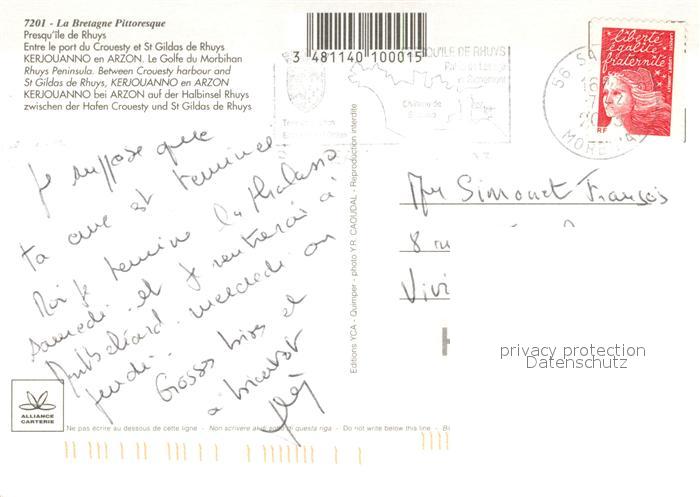 7201 - La Bretagne Pittoresque
Presqu'île de Rhuys
Entre le port du Crouesty et St Gildas de Rhuys
KERJOUANNO en ARZON. Le Golfe du Morbihan
Rhuys Peninsula. Between Crouesty harbour and
St Gildas de Rhuys, KERJOUANNO en ARZON
KERJOUANNO bei ARZON auf der Halbinsel Rhuys
zwischen der Hafen Crouesty und St Gildas de Rhuys
3 481140 100015
QU'ILE DE RHUYS
Château de
56 SA
MORB
liberté
égalité
fraternité
RF
Je suppose que
ta cure est terminée
Moi je termine la thalasso
samedi et je rentrerai à
Montbéliard mercredi ou
jeudi.
Grosses bises et
à bientôt
Editions YCA - Quimper - photo Y.R. CAOUDAL - Reproduction interdite
Simonet François
8 ru
Vivi
privacy protection
Datenschutz
ALLIANCE
CARTERIE
Ne pas écrire au dessous de cette ligne - Non scrivere al di sotto di questa riga - Do not write below this line - Bi